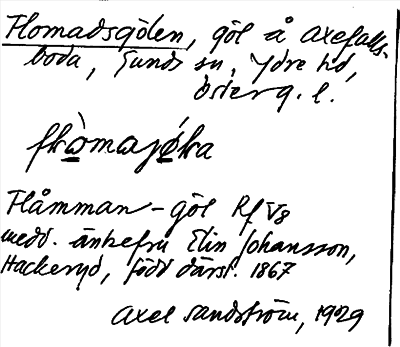 Flomadsgölen, göl å Axefalls-
boda, Sunds sn, Ydre hd,
Österg. l.
Flåmman – göl Rf V8
medd. änkefru Elin Johansson,
Hackeryd, född därst. 1867
Axel Sandström, 1929